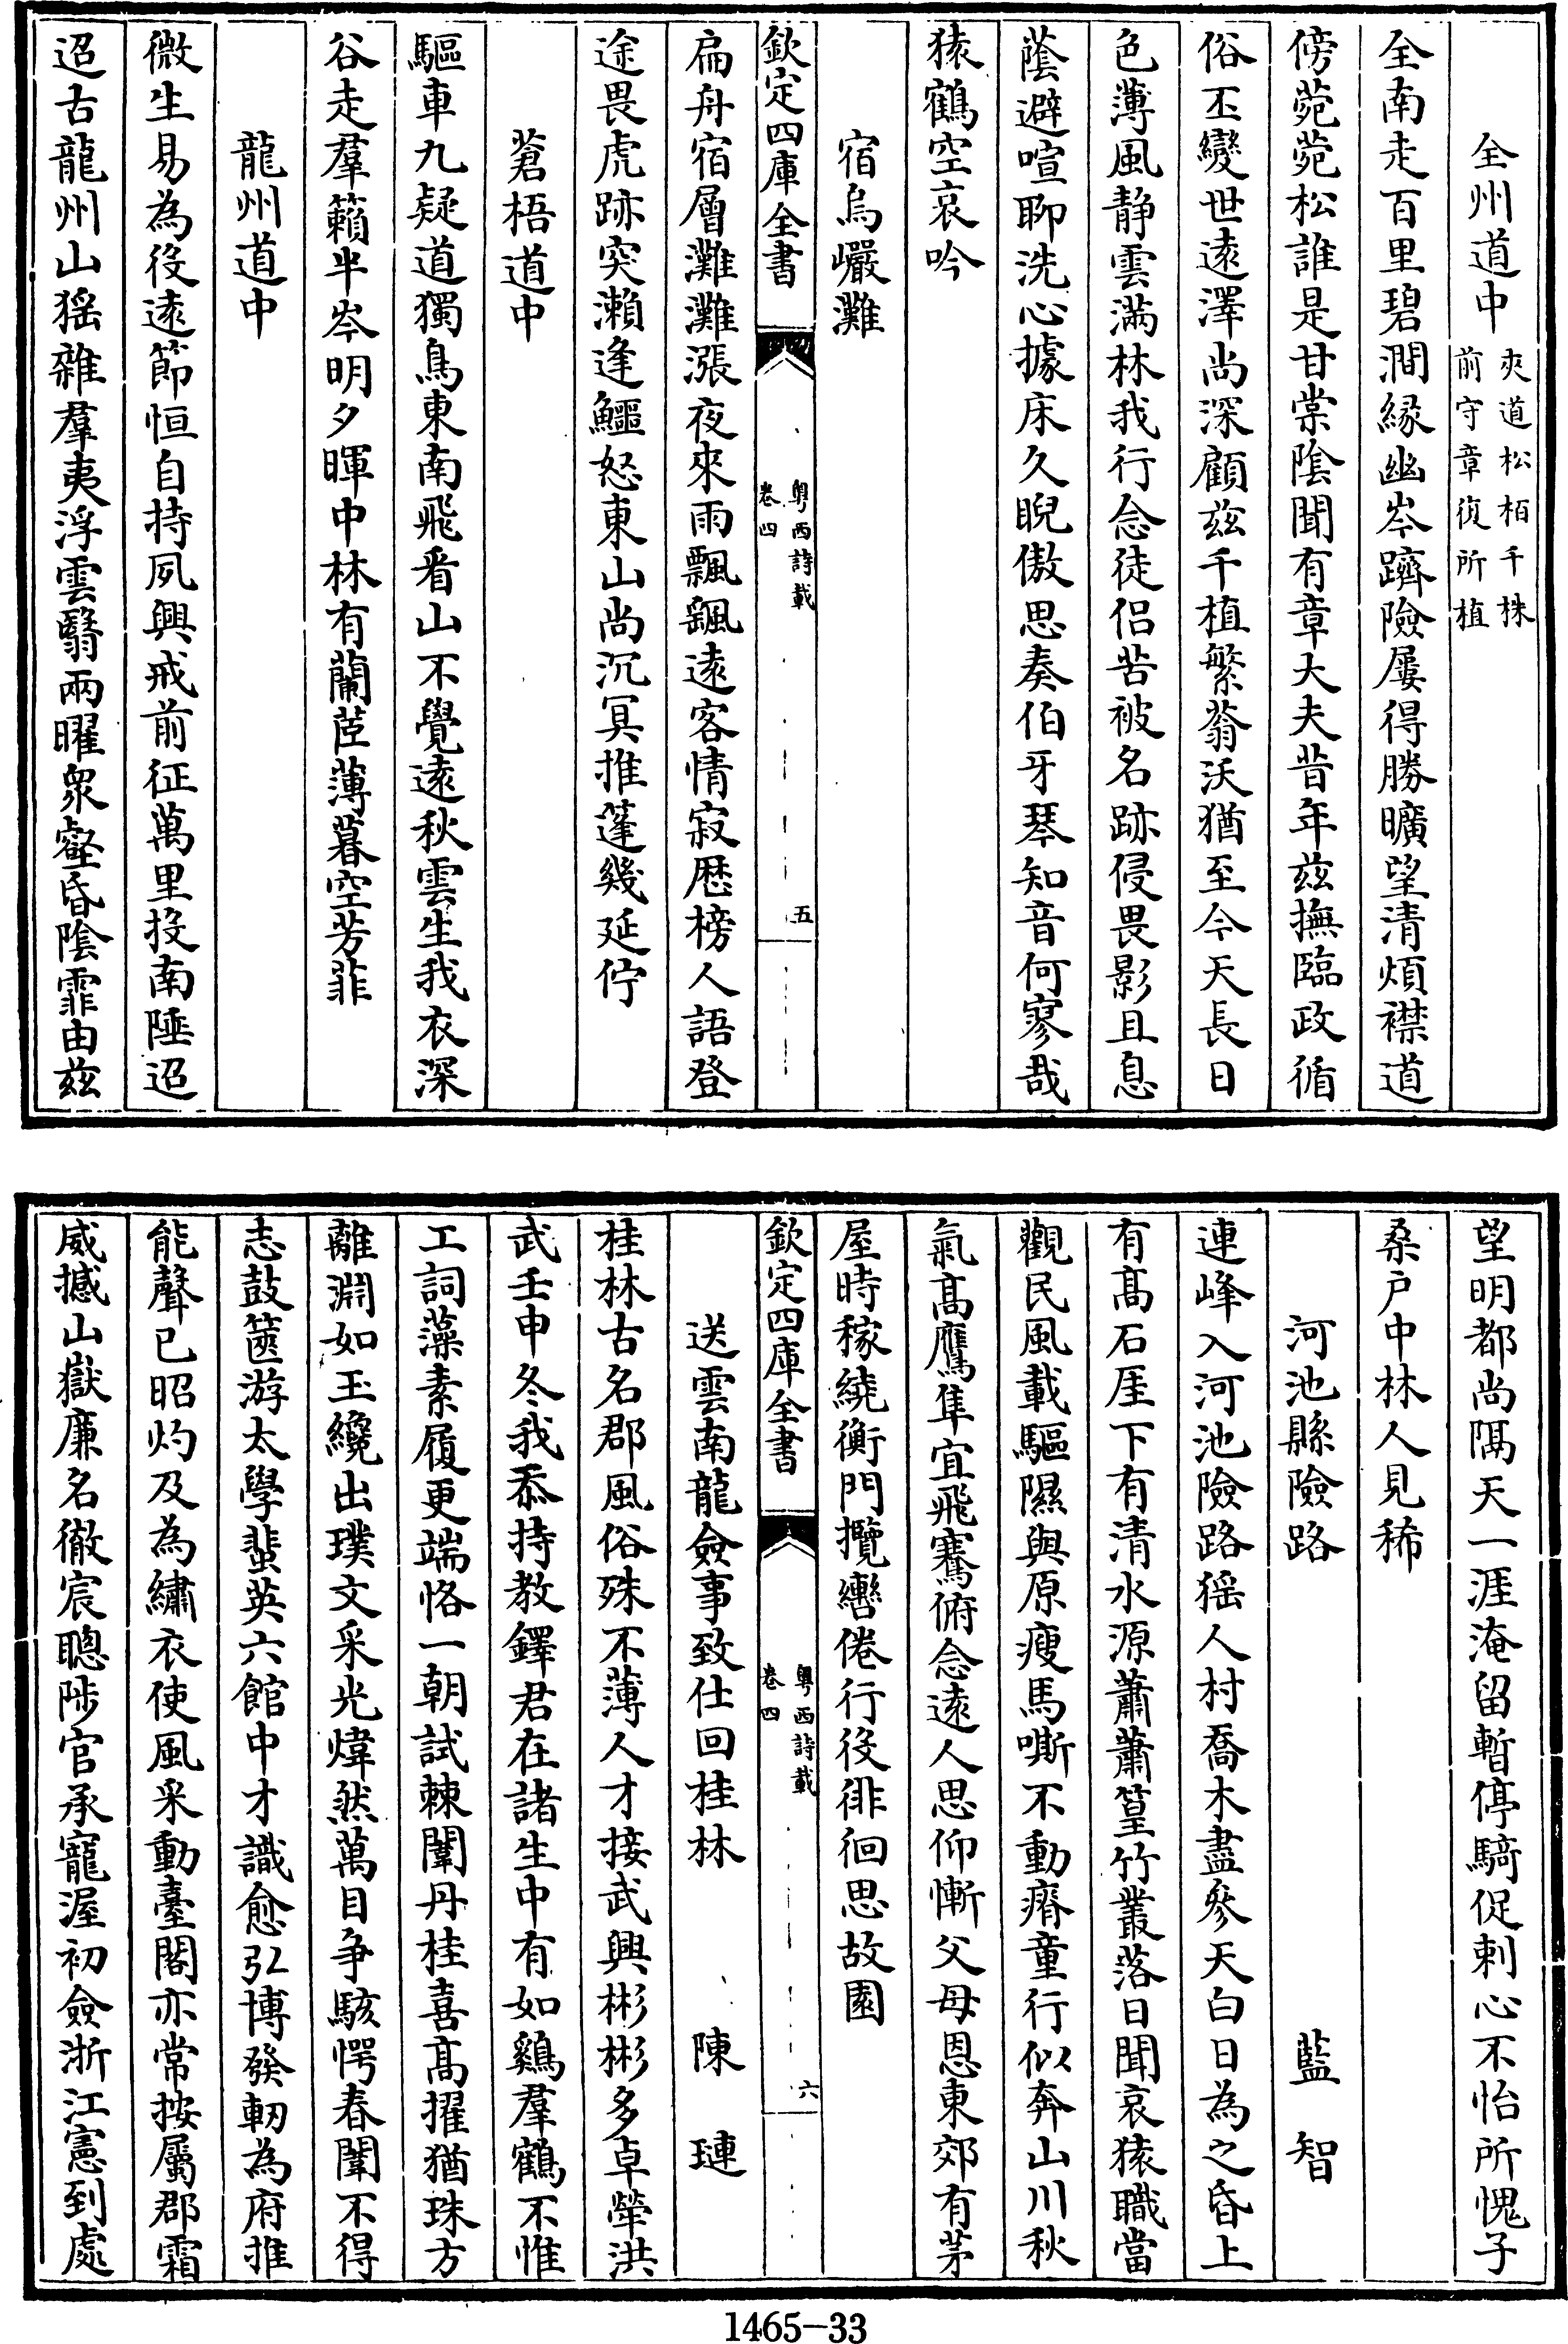 全州道中夾道松栢千株前守章復所植
全南走百里碧澗緣幽岑躋險屢得勝曠望清煩襟道
傍菀菀松誰是甘棠陰聞有章大夫昔年兹撫臨政循
俗丕變世逺澤尚深顧兹千植繁蓊沃猶至今天長日
色薄風静雲滿林我行念徒侣苦被名跡侵畏影且息
蔭避喧聊洗心據床久睨傲思奏伯牙琴知音何寥哉
猿鶴空哀吟
宿烏巖灘
欽定四庫全書
粤西詩載
卷四
五
扁舟宿層灘灘漲夜來雨飄飄逺客情寂歴榜人語登
途畏虎跡突瀨逢鱷怒東山尚沉冥推蓬幾延佇
蒼梧道中
驅車九疑道獨鳥東南飛看山不覺逺秋雲生我衣深
谷走羣籟半岑明夕暉中林有蘭茝薄暮空芳菲
龍州道中
微生易為役逺節恒自持夙興戒前征萬里投南陲迢
迢古龍州山猺雜羣夷浮雲翳兩曜衆壑昏陰霏由兹
望明都尚隔天一涯淹留暫停騎促剌心不怡所愧子
桑戸中林人見稀
河池縣險路 藍智
連峰入河池險路猺人村喬木盡參天白日為之昏上
有髙石厓下有清水源蕭蕭篁竹叢落日聞哀猿職當
觀民風載驅隰與原瘦馬嘶不動瘠童行似奔山川秋
氣髙鷹隼宜飛騫俯念逺人思仰慚父母恩東郊有茅
屋時稼繞衡門攬轡倦行役徘徊思故園
欽定四庫全書
粤西詩載
卷四
六
送雲南龍僉事致仕回桂林 陳璉
桂林古名郡風俗殊不薄人才接武興彬彬多卓犖洪
武壬申冬我忝持教鐸君在諸生中有如鷄羣鶴不惟
工詞藻素履更端恪一朝試棘闈丹桂喜髙擢猶珠方
離淵如玉纔出璞文采光煒然萬目爭駭愕春闈不得
志鼓篋游太學蜚英六館中才識愈弘博發軔為府推
能聲已昭灼及為繡衣使風采動臺閣亦常按屬郡霜
威撼山嶽廉名徹宸聰陟官承寵渥初僉浙江憲到處
1465-33